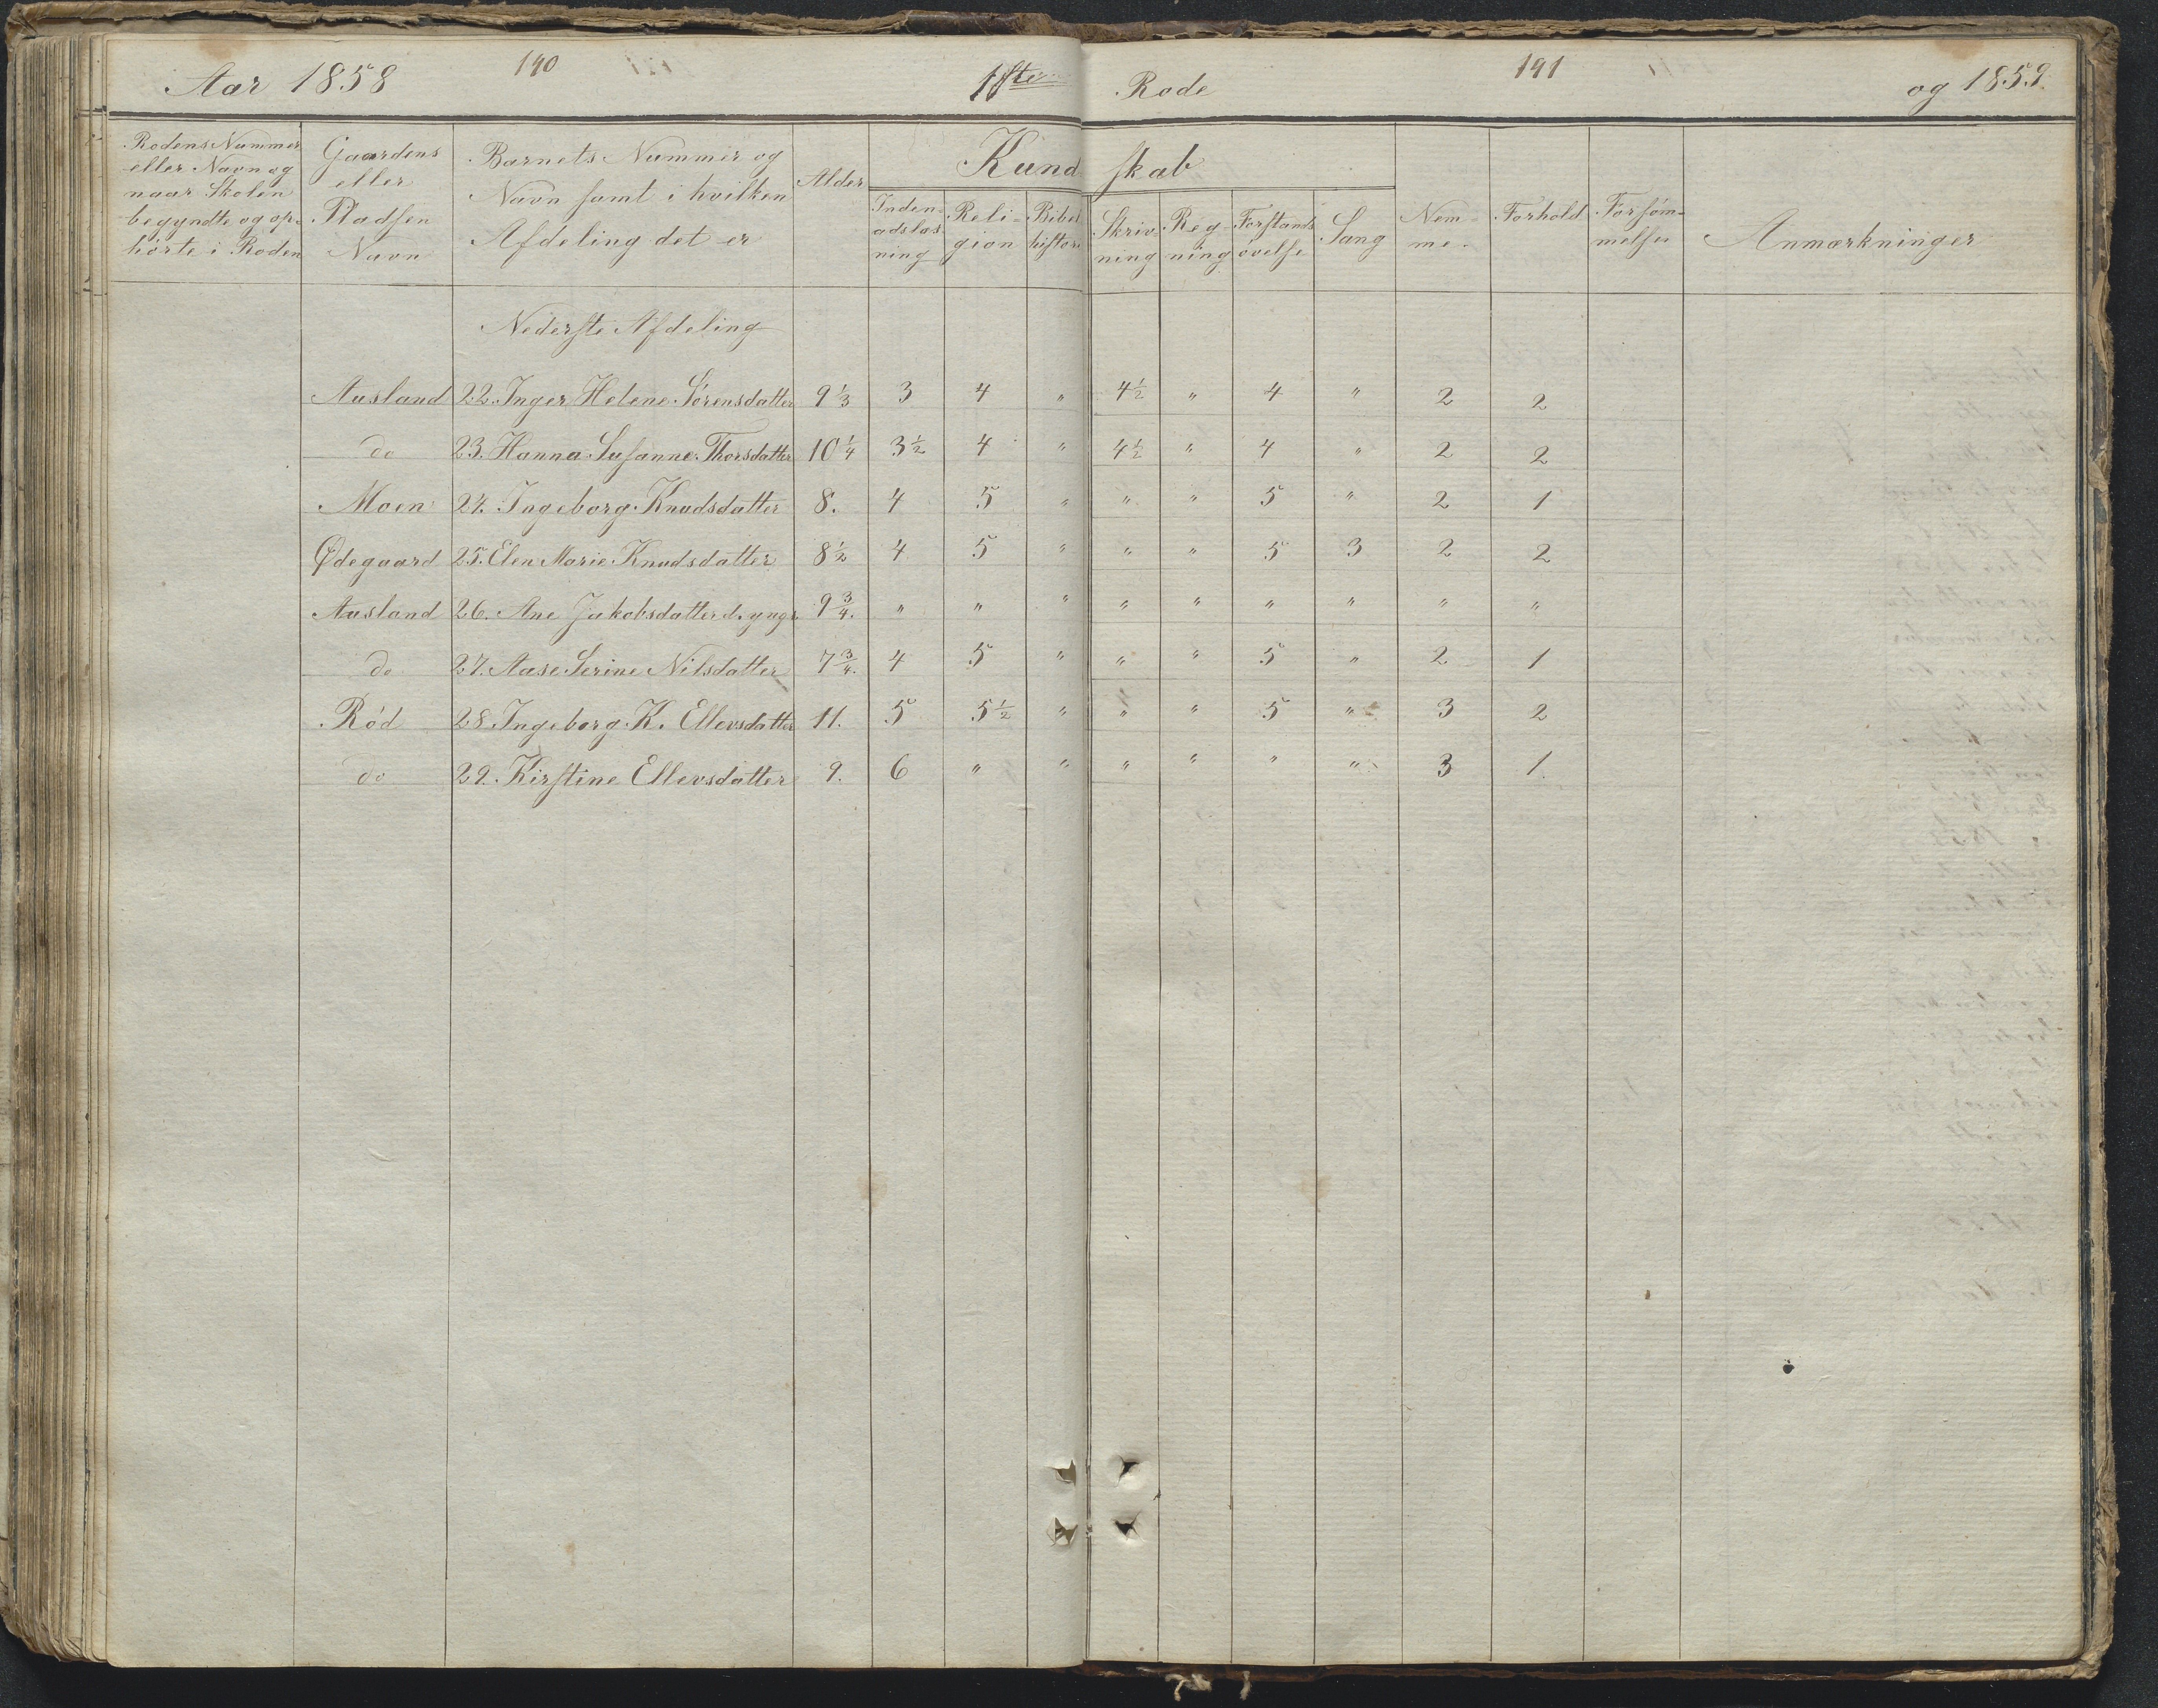 Aar 1858 190 1ste Rode 191 og 1859.
Rodens Nummer
eller Navn og
naar Skolen
begyndte og op-
hörte i Roden
Gaardens
eller
Pladsen
Navn
Barnets Nummer og
Navn samt i hvilken
Afdeling det er
Alder
Kundskab
Inden-
adslæs-
ning
Reli-
gion
Bibel
histori
Skriv-
ning
Reg-
ning
Forstands
övelse
Sang
Nem-
me.
Forhold
Forsöm-
melser
Anmærkninger
Nederste Afdeling
Ausland 22. Inger Helene Sörensdatter 9 1/3 3 4 " 4 1/2 " 4 " 2 2
do 23. Hanna Susanne Thorsdatter 10 1/4 3 1/2 4 " 4 1/2 " 4 " 2 2
Moen 24. Ingeborg Knudsdatter 8. 4 5 " " " 5 " 2 1
Ødegaard 25. Elen Marie Knudsdatter 8 1/2 4 5 " " " 5 3 2 2
Ausland 26. Ane Jakobsdatter d. yngr. 9 3/4. " " " " " " " " "
do 27. Aase Serine Nilsdatter 7 3/4. 4 5 " " " 5 " 2 1
Röd 28. Ingeborg K. Ellevsdatter 11. 5 5 1/2 " " " 5 " 3 2
do 29. Kirstine Ellevsdatter 9. 6 " " " " " " 3 1